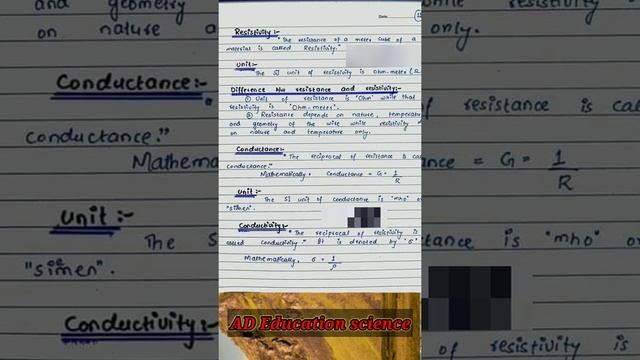 Date
Resistivity:-
"The resistance of a meter cube of a
material is called Resistivity."
Unit:-
The SI unit of resistivity is Ohm-meter (Ω
Difference b/w resistance and resistivity:-
① Unit of resistance is "Ohm" while that
resistivity is "Ohm-meter".
② "Resistance depends on nature, temperatu
and geometry of the wire while resistivity
on nature and temperature only.
Conductance:-
"The reciprocal of resistance is call
conductance."
Mathematically, Conductance = G = 1/R
Unit:-
The SI unit of conductance is "mho" or
"simen".
Conductivity:-
"The reciprocal of resistivity is
called conductivity." It is denoted by "σ"
Mathematically, σ = 1/ρ
AD Education science
and geometry
on nature a
Conductance:-
conductance."
Mathem
Unit:-
The S
"simen".
Conductivity:-
resistivity
only.
of resistance is cal
ance = G = 1/R
uctance is "mho" or
of resistivity is